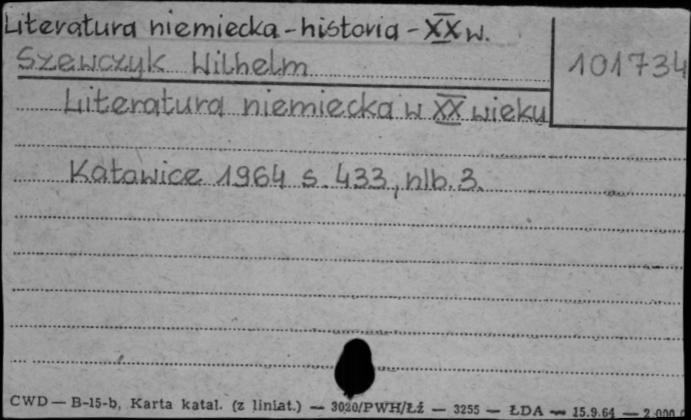 Literatura niemiecka - historia - XX w.
Szewczyk Wilhelm
101734
Literatura niemiecka w XX wieku
Katowice 1964 s. 433, nlb. 3.
CWD — B-15-b, Karta katal. (z liniat.) — 3020/PWH/Łź — 3255 — ŁDA — 15.9.64 — 2.000